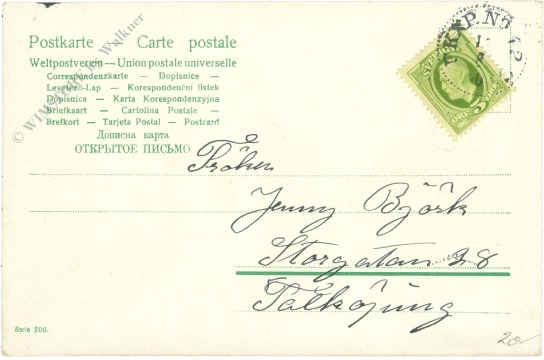 Postkarte — Carte postale
Weltpostverein — Union postale universelle
Correspondenzkarte — Dopisnice —
Levelező-Lap — Korespondenční listek
Dopisnica — Karta Korespondenzyjna
Briefkaart — Cartolina Postale —
Brefkort — Tarjeta Postal — Postcard
Дописна карта
ОТКРЫТОЕ ПИСЬМО
PKXP. Nº
Fröken
Jenny Björk
Storgatan 28
Falköping
Serie 200.
20